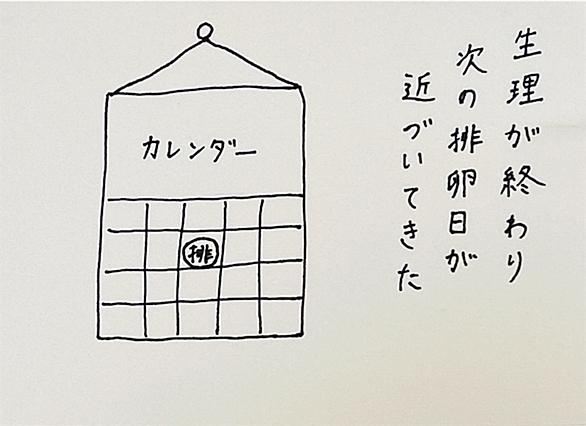 生理が終わり
次の排卵日が
近づいてきた
カレンダー
排